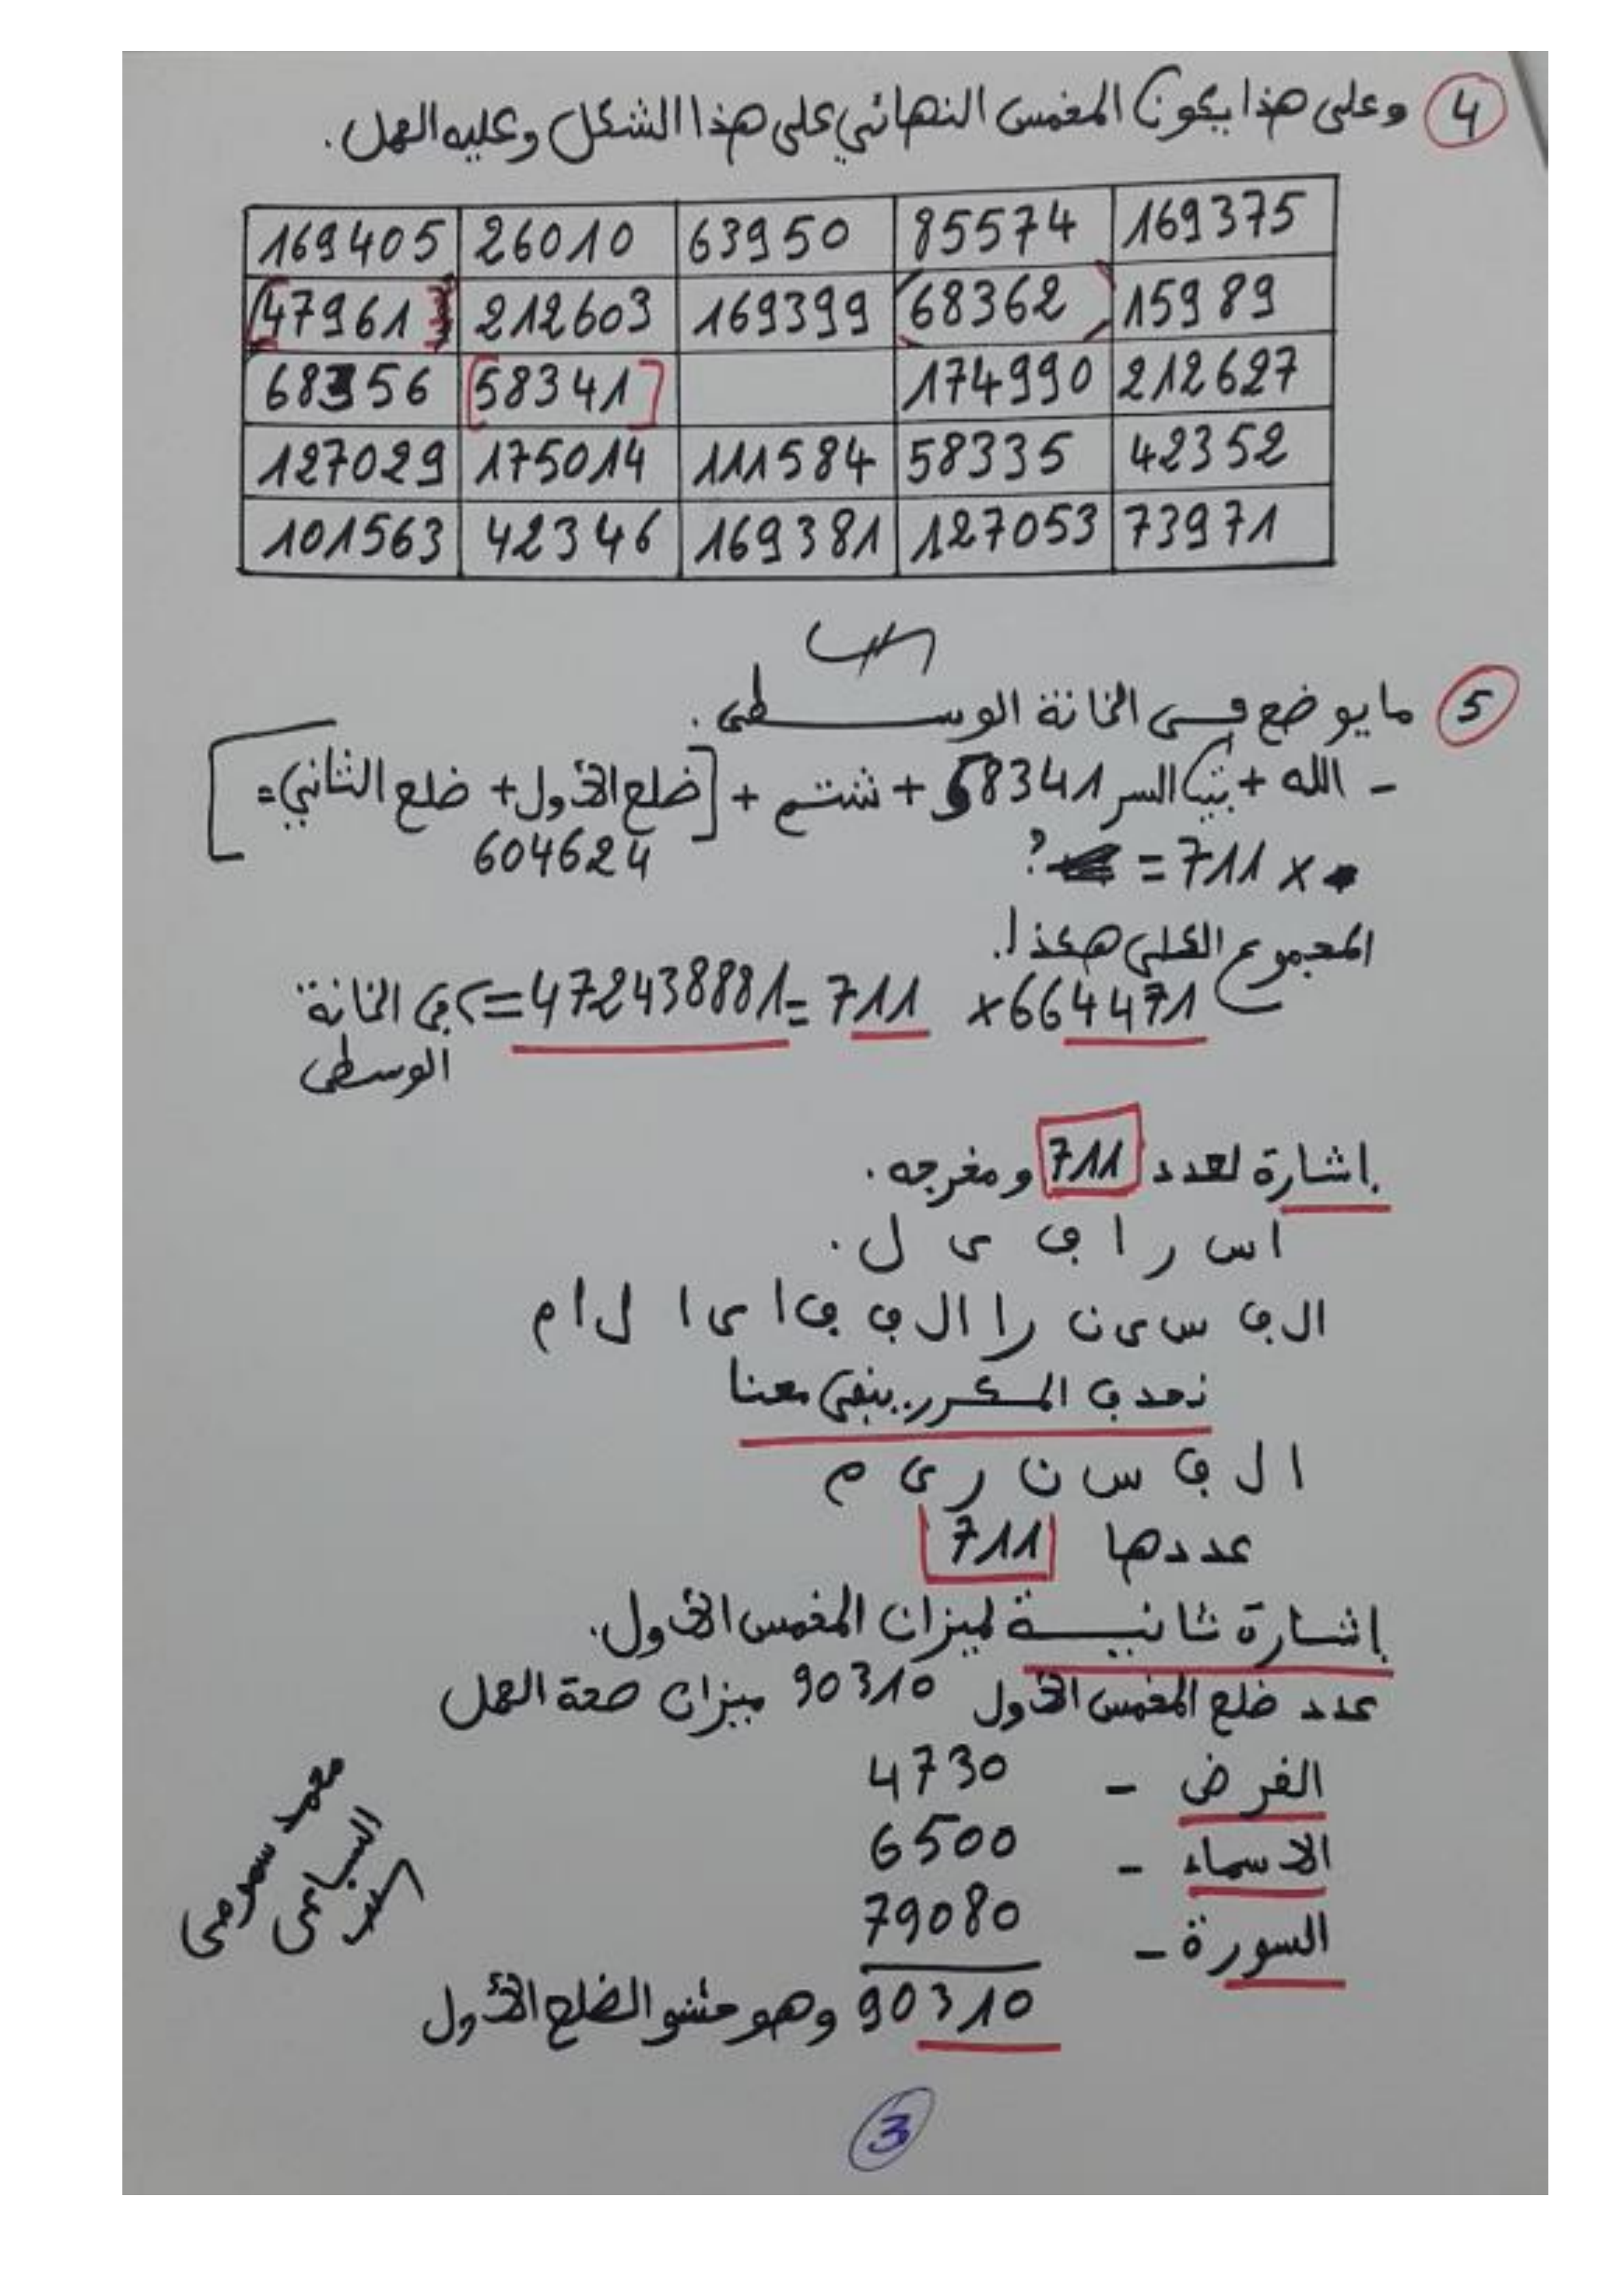 4 وعلى هذا يكون المخمس النهائي على هذا الشكل وعليه العمل.
169405 26010 63950 85574 169375
47961 212603 169399 68362 15989
68356 58341 174990 212627
127029 175014 111584 58335 42352
101563 42346 169381 127053 73971
5 ما يوضع في الخانة الوسطى.
- الله + بيت السر 58341 + شتم + [ضلع الأول + ضلع الثاني =
604624
× 711 = ?
المجموع الكلي هكذا.
664471 × 711 = 472438881 => في الخانة
الوسطى
إشارة لعدد 711 ومخرجه.
ا س ر ا ف ي ل.
الف سين را الف فا يا لام
نحذف المكرر.. يبقى معنا
ا ل ف س ن ر ي م
عددها 711
إشارة ثانية لميزان المخمس الأول.
عدد ضلع المخمس الأول 90310 ميزان صحة العمل
الفرض - 4730
الاسماء - 6500
السورة - 79080
90310 وهو حشو الضلع الأول
3